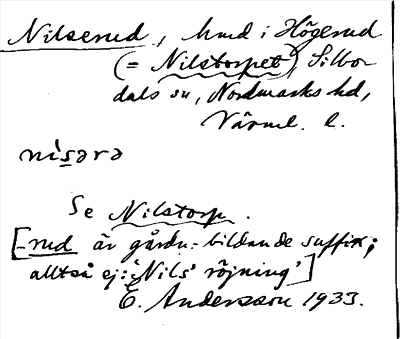 Nilserud, hmd i Högerud
(= Nilstorpet), Silbo-
dals sn, Nordmarks hd,
Värml. l.
nìsərə
Se Nilstorp.
[-rud är gårdn.-bildande suffix;
alltså ej: 'Nils' röjning']
E. Andersson 1933.